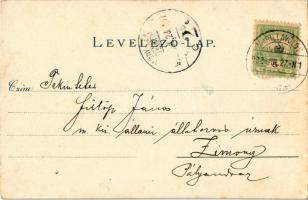 LEVELEZŐ-LAP.
Czim: Tekintetes
Fülöp János
m. kir. állami állatorvos úrnak
Zimony
Pályaudvar